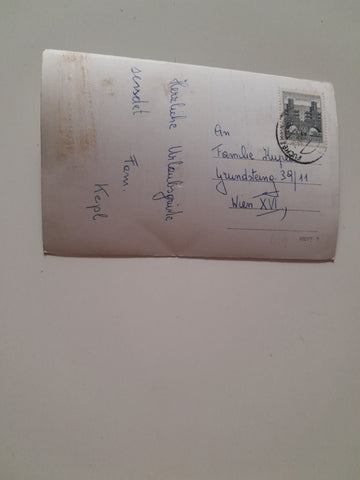 Herzliche Urlaubsgrüße
sendet
Fam.
Kepl
An
Familie
Grundsteing 39/11
Wien XVI,